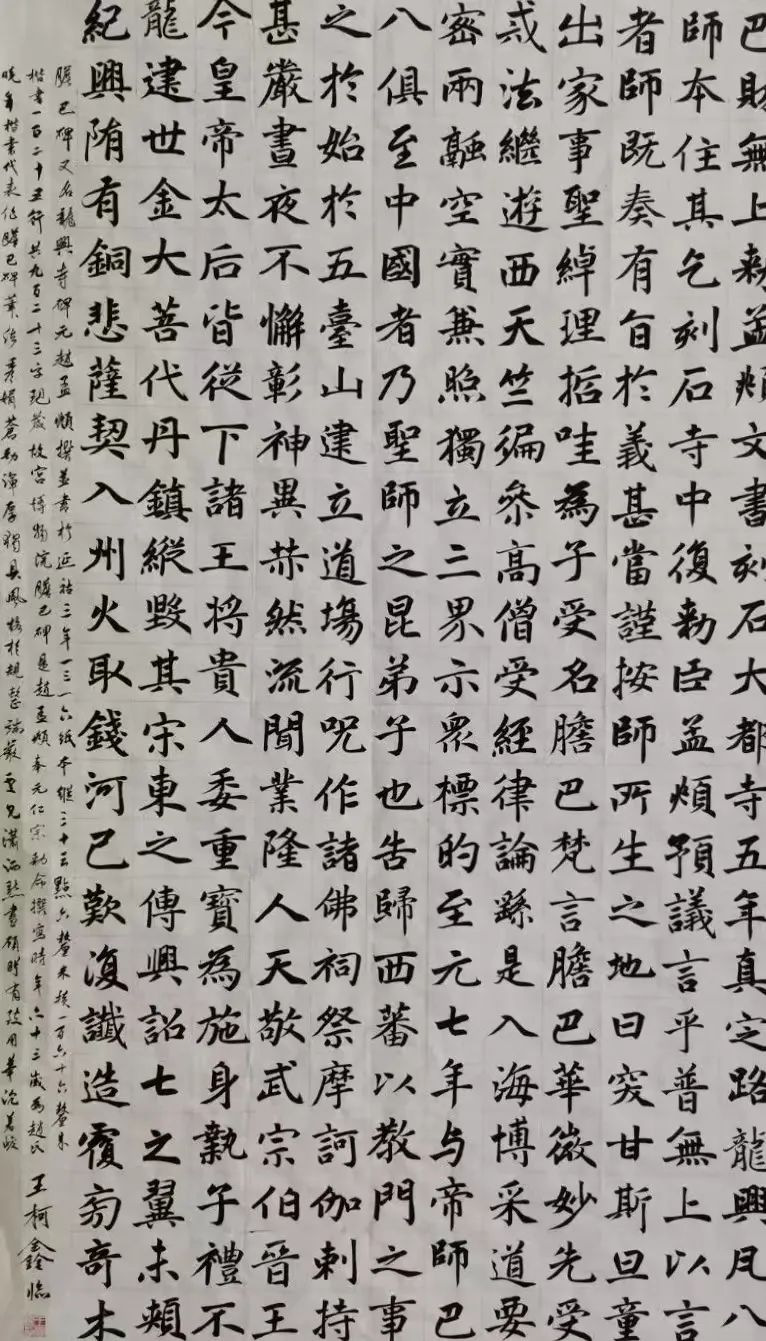 巴財無上勑孟頫文書刻石大都寺五年真定路龍興凡八
師本住其乞刻石寺中復勑臣孟頫預議言乎普無上以言
者師既奏有旨於義甚當謹按師所生之地曰突甘斯旦童
出家事聖綽理哲哇為子受名膽巴梵言膽巴華微妙先受
戒法繼遊西天竺徧參高僧受經律論繇是入海博采道要
密兩融空實兼照獨立三界示眾標的至元七年与帝師巴
八俱至中國者乃聖師之昆弟子也告歸西蕃以教門之事
之於始於五臺山建立道場行呪作諸佛祠祭摩訶伽剌持
甚嚴晝夜不懈彰神異赫然流聞業隆人天敬武宗伯晉王
今皇帝太后皆從下諸王將貴人委重寶為施身執子禮不
龍逮世金大菩代丹鎮縱毀其宋東之傳興詔七之翼未頰
紀興隋有銅悲薩契入州火取錢河已歎復讖造覆旁奇木
膽巴碑又名龍興寺碑元趙孟頫撰並書於延祐三年一三一六紙本縱三十三點六釐米橫一百六十六釐米
楷書一百二十五行共九百二十三字現藏故宮博物院膽巴碑是趙孟頫奉元仁宗勑命撰寫時年六十三歲為趙氏
晚年楷書代表作膽巴碑筆法秀媚蒼勁渾厚獨具風格於規整端嚴更見瀟洒用筆沉著
王柯鑫臨